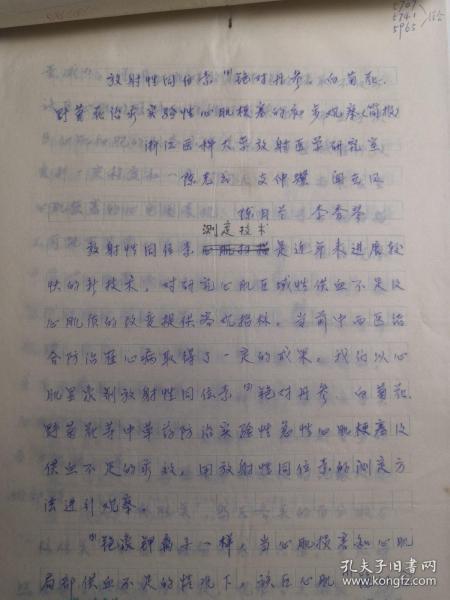 5707
5741
5965
放射性同位素131铯对丹参、白菊花、
野菊花治疗实验性心肌梗塞的初步观察(简报)
浙江医科大学放射医学研究室
陈
陈月兰 李
测定技术
放射性同位素心肌扫描是近年来进展较
快的新技术,对研究心肌区域性供血不足及
心肌质的改变提供客观指标。当前中西医结
合防治冠心病取得了一定的成果。我们以心
肌显影剂放射性同位素 铯对丹参、白菊花、
野菊花等中草药防治实验性急性心肌梗塞及
供血不足的疗效,用放射性同位素的测定方
法进行观察。
铯离子 钾离子一样,当心肌损害和心肌
局部供血不足的情况下,该区心肌
孔夫子旧书网